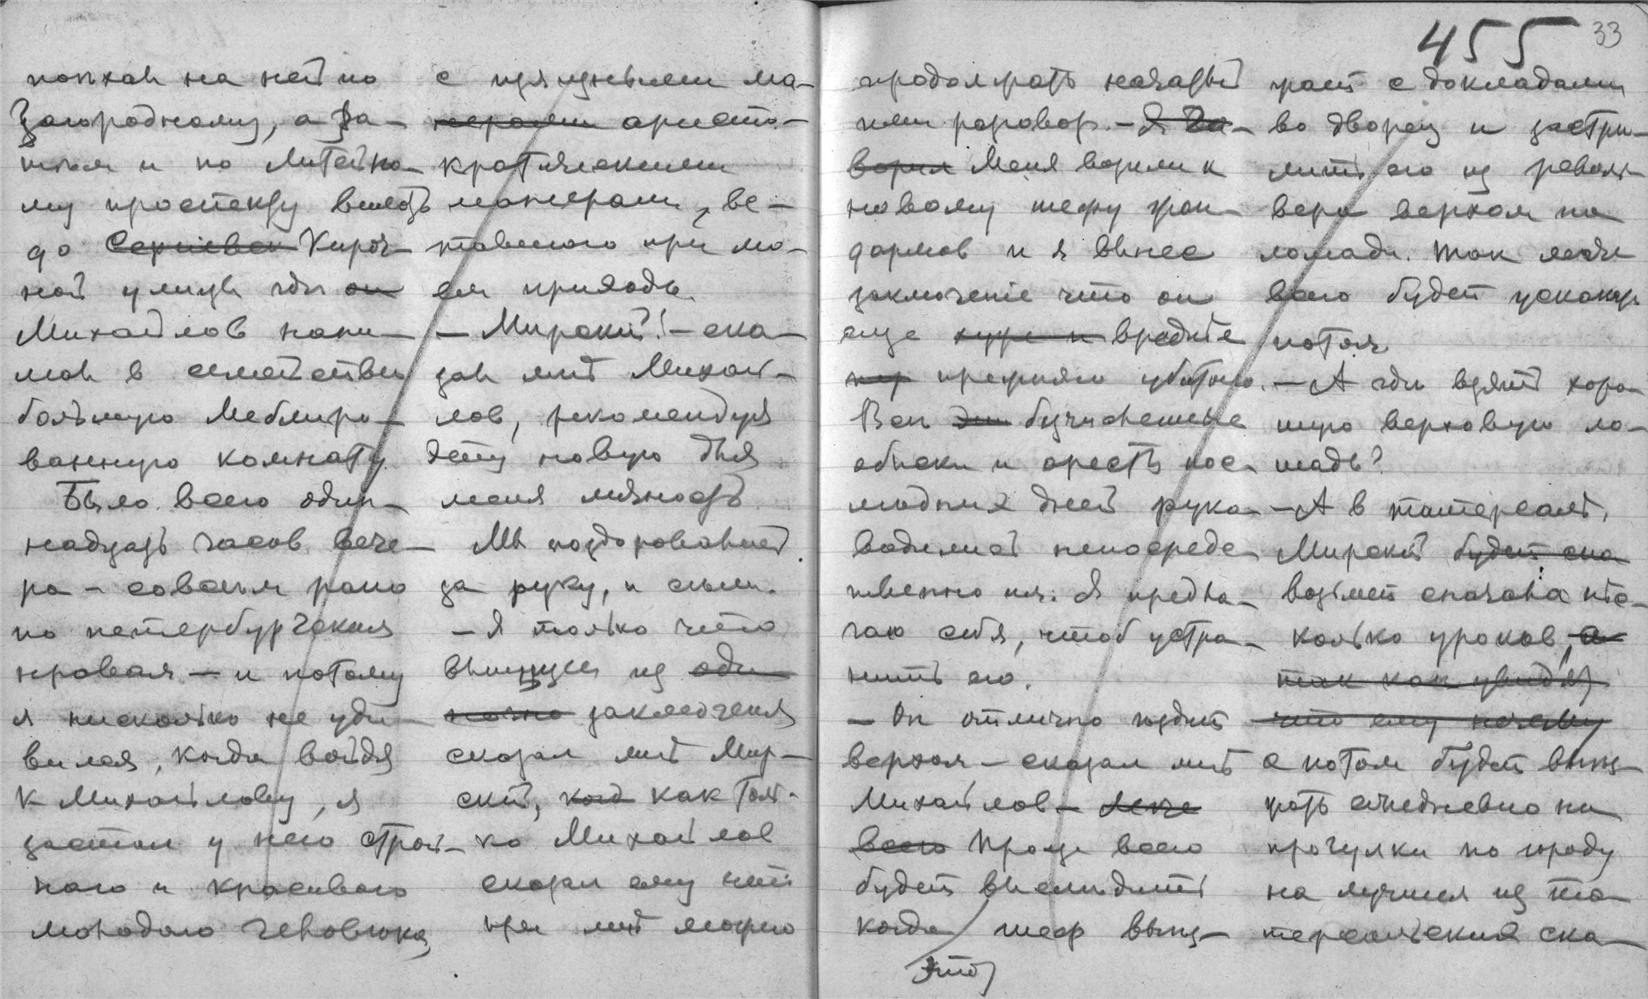 455 33
поѣхал на ней по
Загородному, а за-
тѣм и по Литейно-
му проспекту вплоть
до Сергіевск Кироч-
ной улицы гдѣ он
Михайлов нани-
мал в семействѣ
большую меблиро-
ванную комнату
Было всего один-
надцать часов вече-
ра – совсѣм рано
по петербургским
нравам – и потому
я нисколько не уди-
вился, когда войдя
к Михайлову, я
застал у него строй-
наго и красиваго
молодого человѣка,
с изящными ма-
нерами аристо-
кратическими
манерами, вс-
тавшаго при мо-
ем приходѣ.
– Мирскій! – ска-
зал мнѣ Михай-
лов, рекомендуя
эту новую для
меня личность
Мы поздоровались
за руку, и сѣли.
– Я только что
выпущен из оди
ночно заключенія
сказал мнѣ Мир-
скій, когд как толь-
ко Михайлов
сказал ему что
при мнѣ можно
продолжать начатый
ими разговор. – Я го-
ворил Меня возили к
новому шефу жан-
дармов и я вынес
заключеніе что он
еще хуже и вреднѣе
прежняго убитаго.
Всѣ эти бузчисленные
обыски и аресты пос-
лѣдних дней руко-
водились непосредс-
твенно им. Я предла-
гаю себя, чтоб устра-
нить его.
– Он отлично ѣздит
верхом – сказал мнѣ
Михайлов – Легче
всего Проще всего
будет выслѣдить
когда шеф выѣз-
жает с докладами
во дворец и застрѣ-
лить его из револь-
вера верхом на
лошади. Так легче
всего будет ускакать
потом.
– А гдѣ взять хоро-
шую верховую ло-
шадь?
– А в татерсалѣ,
Мирскій будет ска
возьмет сначала нѣс-
колько уроков, а
так как увидят
что ему
а потом будет выѣз-
жать ежедневно на
прогулки по городу
на лучшей из та-
терсальских ска-
это